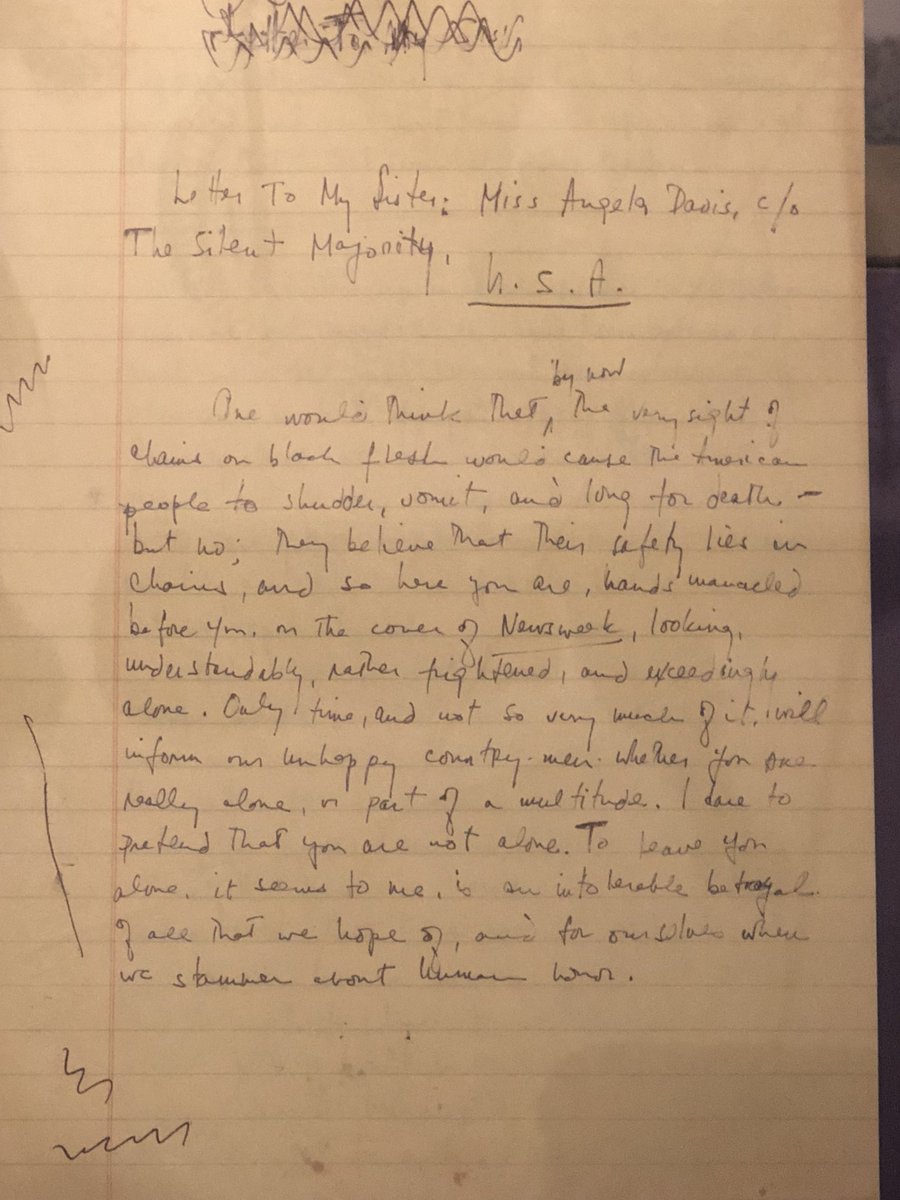 Letter To My Sister: Miss Angela Davis, c/o
The Silent Majority,
U.S.A.
by now
One would think that, the very sight of
chains on black flesh would cause the American
people to shudder, vomit, and long for death —
but no; they believe that their safety lies in
chains, and so here you are, hands manacled
before you, on the cover of Newsweek, looking,
understandably, rather frightened, and exceedingly
alone. Only time, and not so very much of it, will
inform our unhappy country-men whether you are
really alone, or part of a multitude. I dare to
pretend that you are not alone. To leave you
alone, it seems to me, is an intolerable betrayal
of all that we hope of, and for ourselves when
we stammer about human honor.